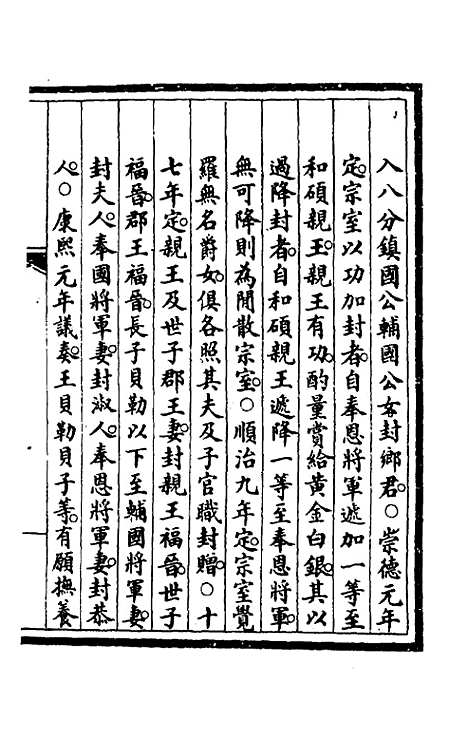 入八分鎮國公輔國公女封鄉君。○崇德元年
定。宗室以功加封者。自奉恩將軍遞加一等至
和碩親王。親王有功。酌量賞給黃金白銀。其以
過降封者。自和碩親王遞降一等至奉恩將軍。
無可降則為閒散宗室。○順治九年定。宗室覺
羅無名爵女。俱各照其夫及子官職封贈。○十
七年定。親王及世子郡王妻。封親王福晉。世子
福晉。郡王福晉。長子貝勒以下至輔國將軍妻。
封夫人。奉國將軍妻。封淑人。奉恩將軍妻。封恭
人。○康熙元年議奏。王貝勒貝子等。有願撫養